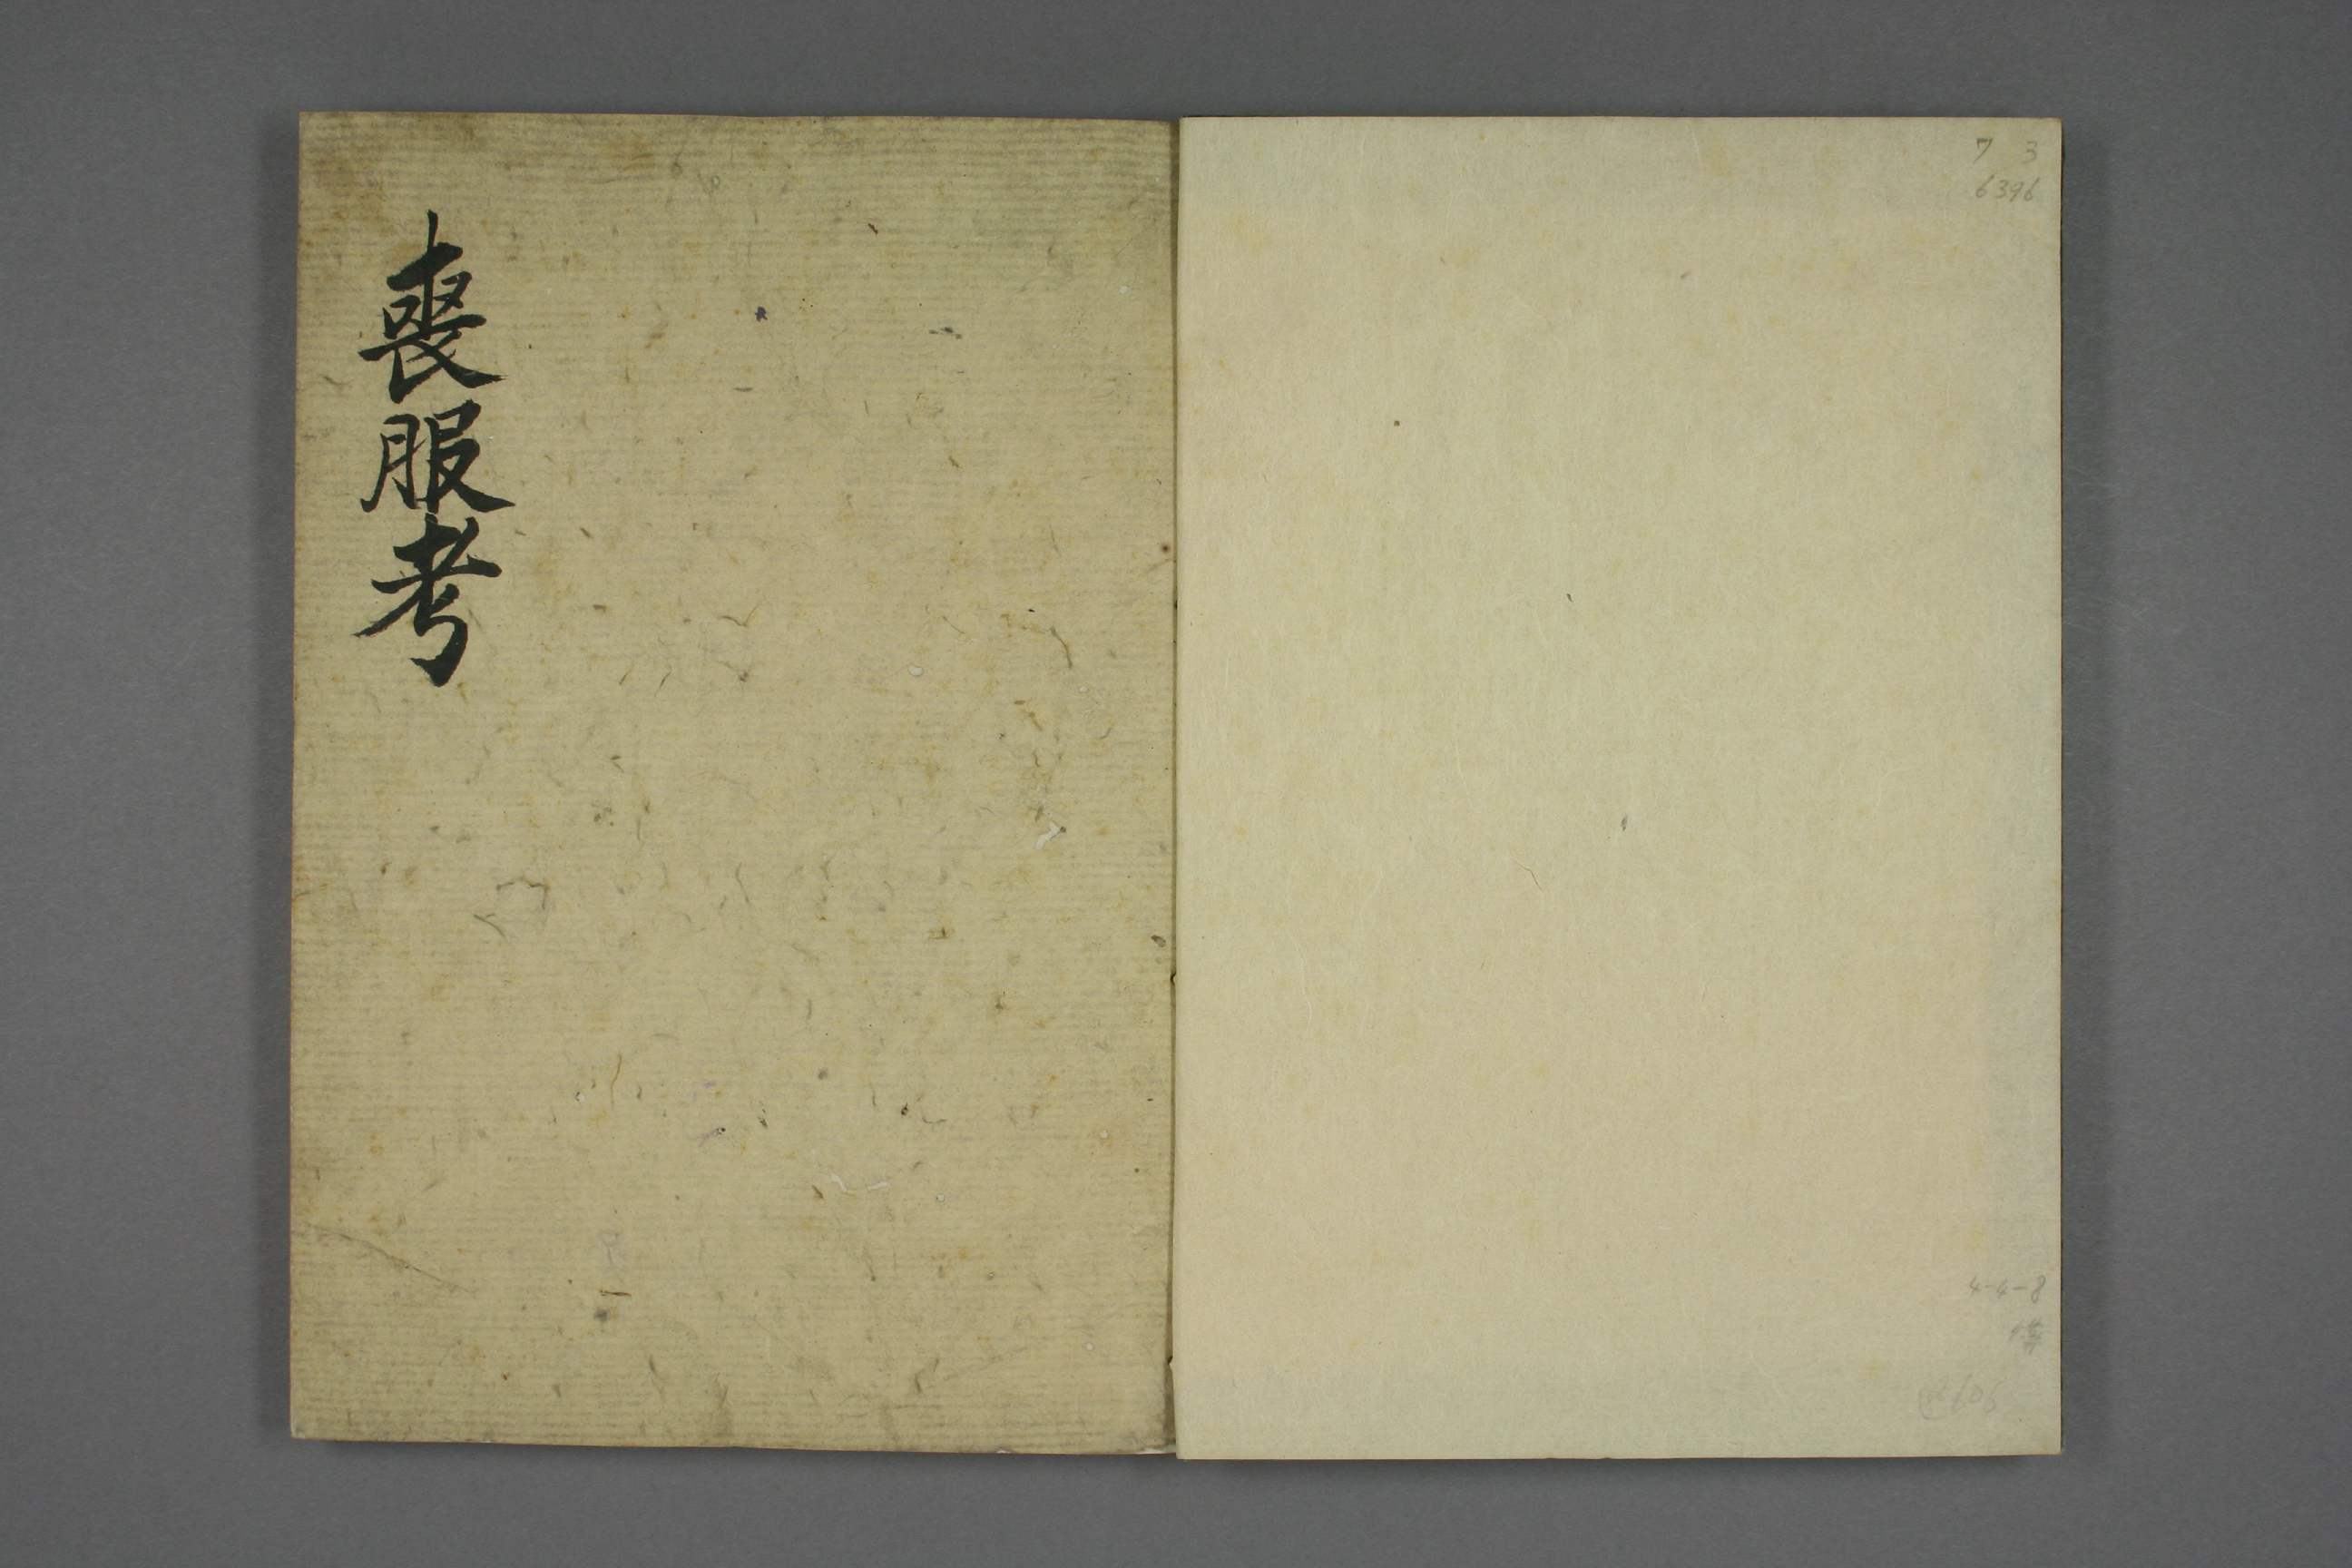 喪服考
7 3
6396
4-4-8